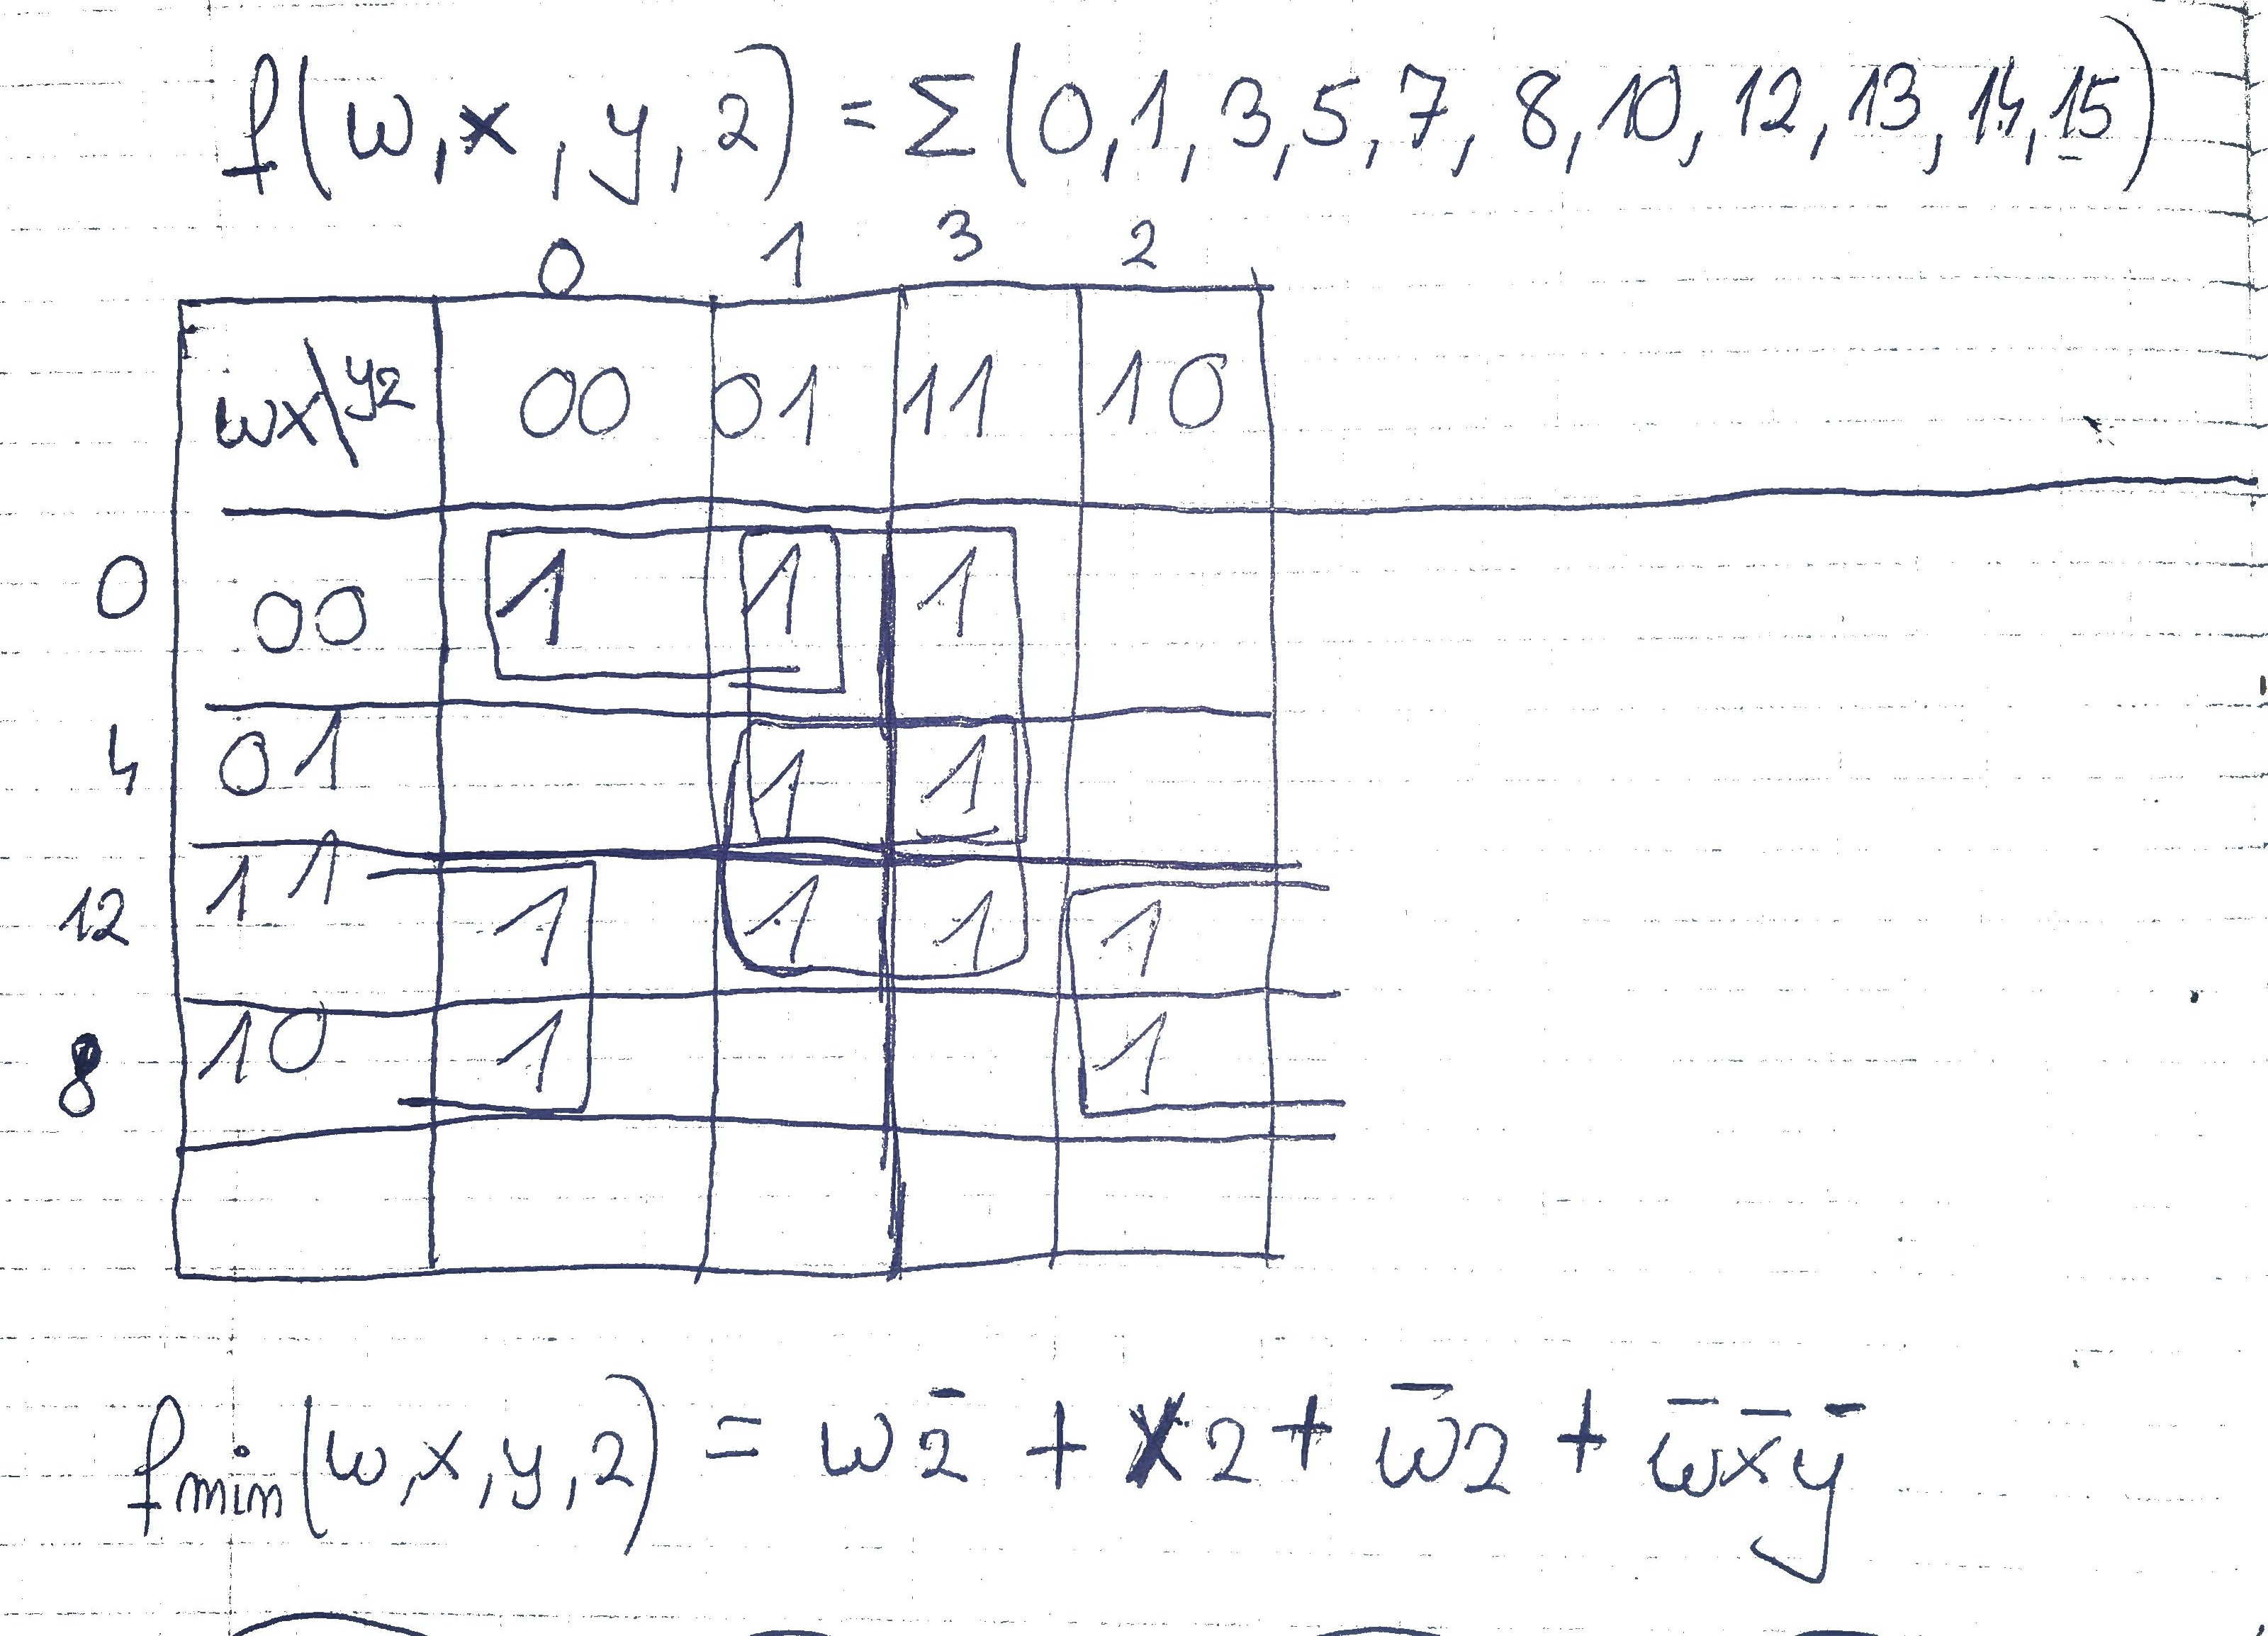 f(w,x,y,z) = Σ(0,1,3,5,7,8,10,12,13,14,15)
0 1 3 2
wx\yz 00 01 11 10
0 00 1 1 1
4 01 1 1
12 11 1 1 1 1
8 10 1 1
fmin(w,x,y,z) = wz̄ + xz + w̄z + w̄x̄ȳ